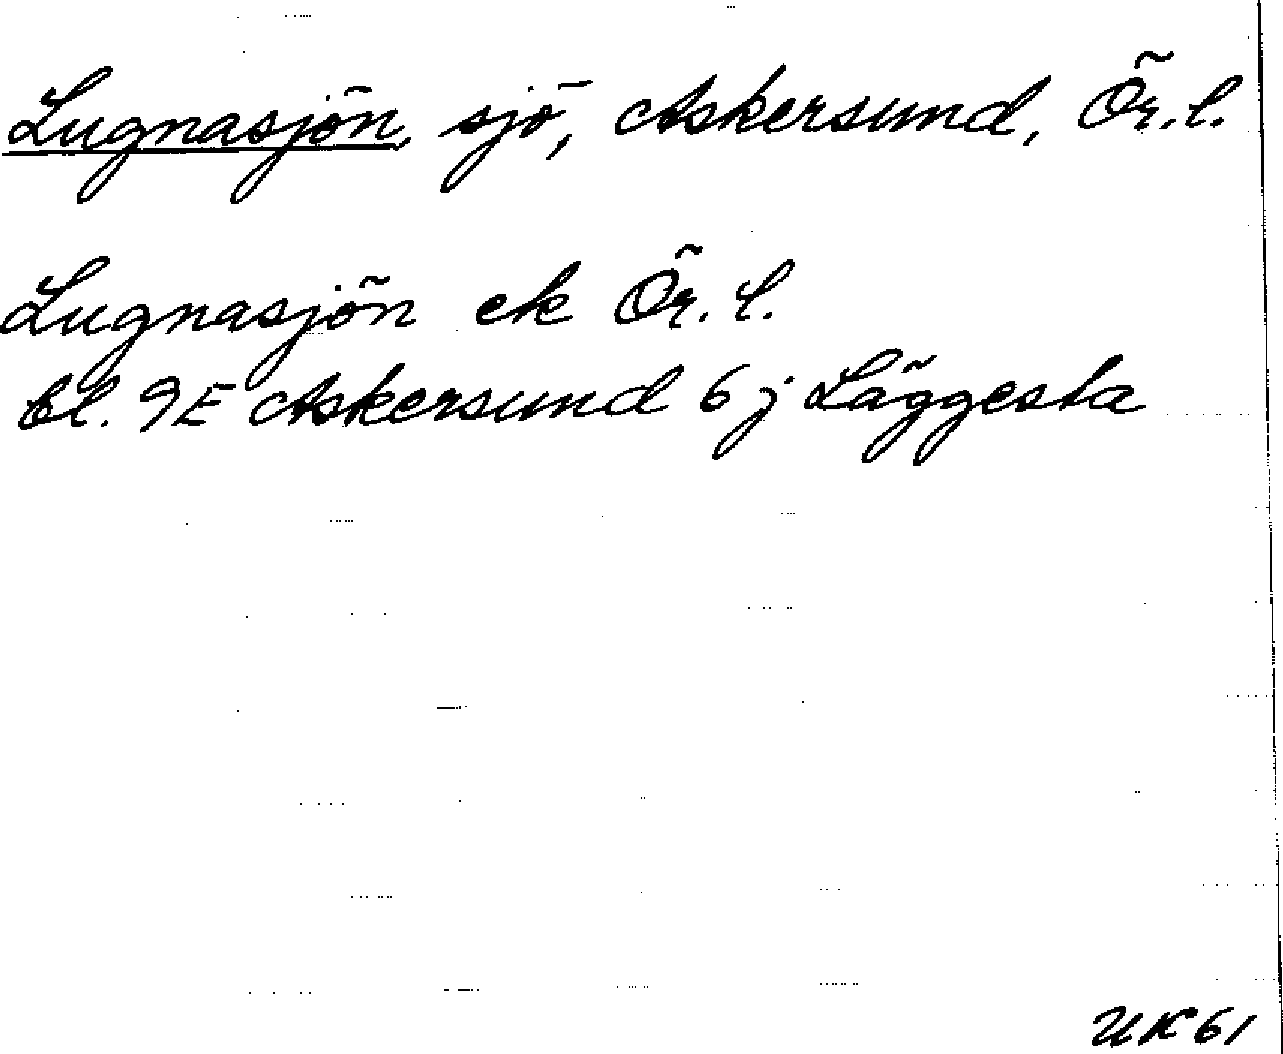 Lugnasjön, sjö, Askersund, Ör. l.
Lugnasjön ek Ör. l.
bl. 9E Askersund 6 j Läggesta
UK 61